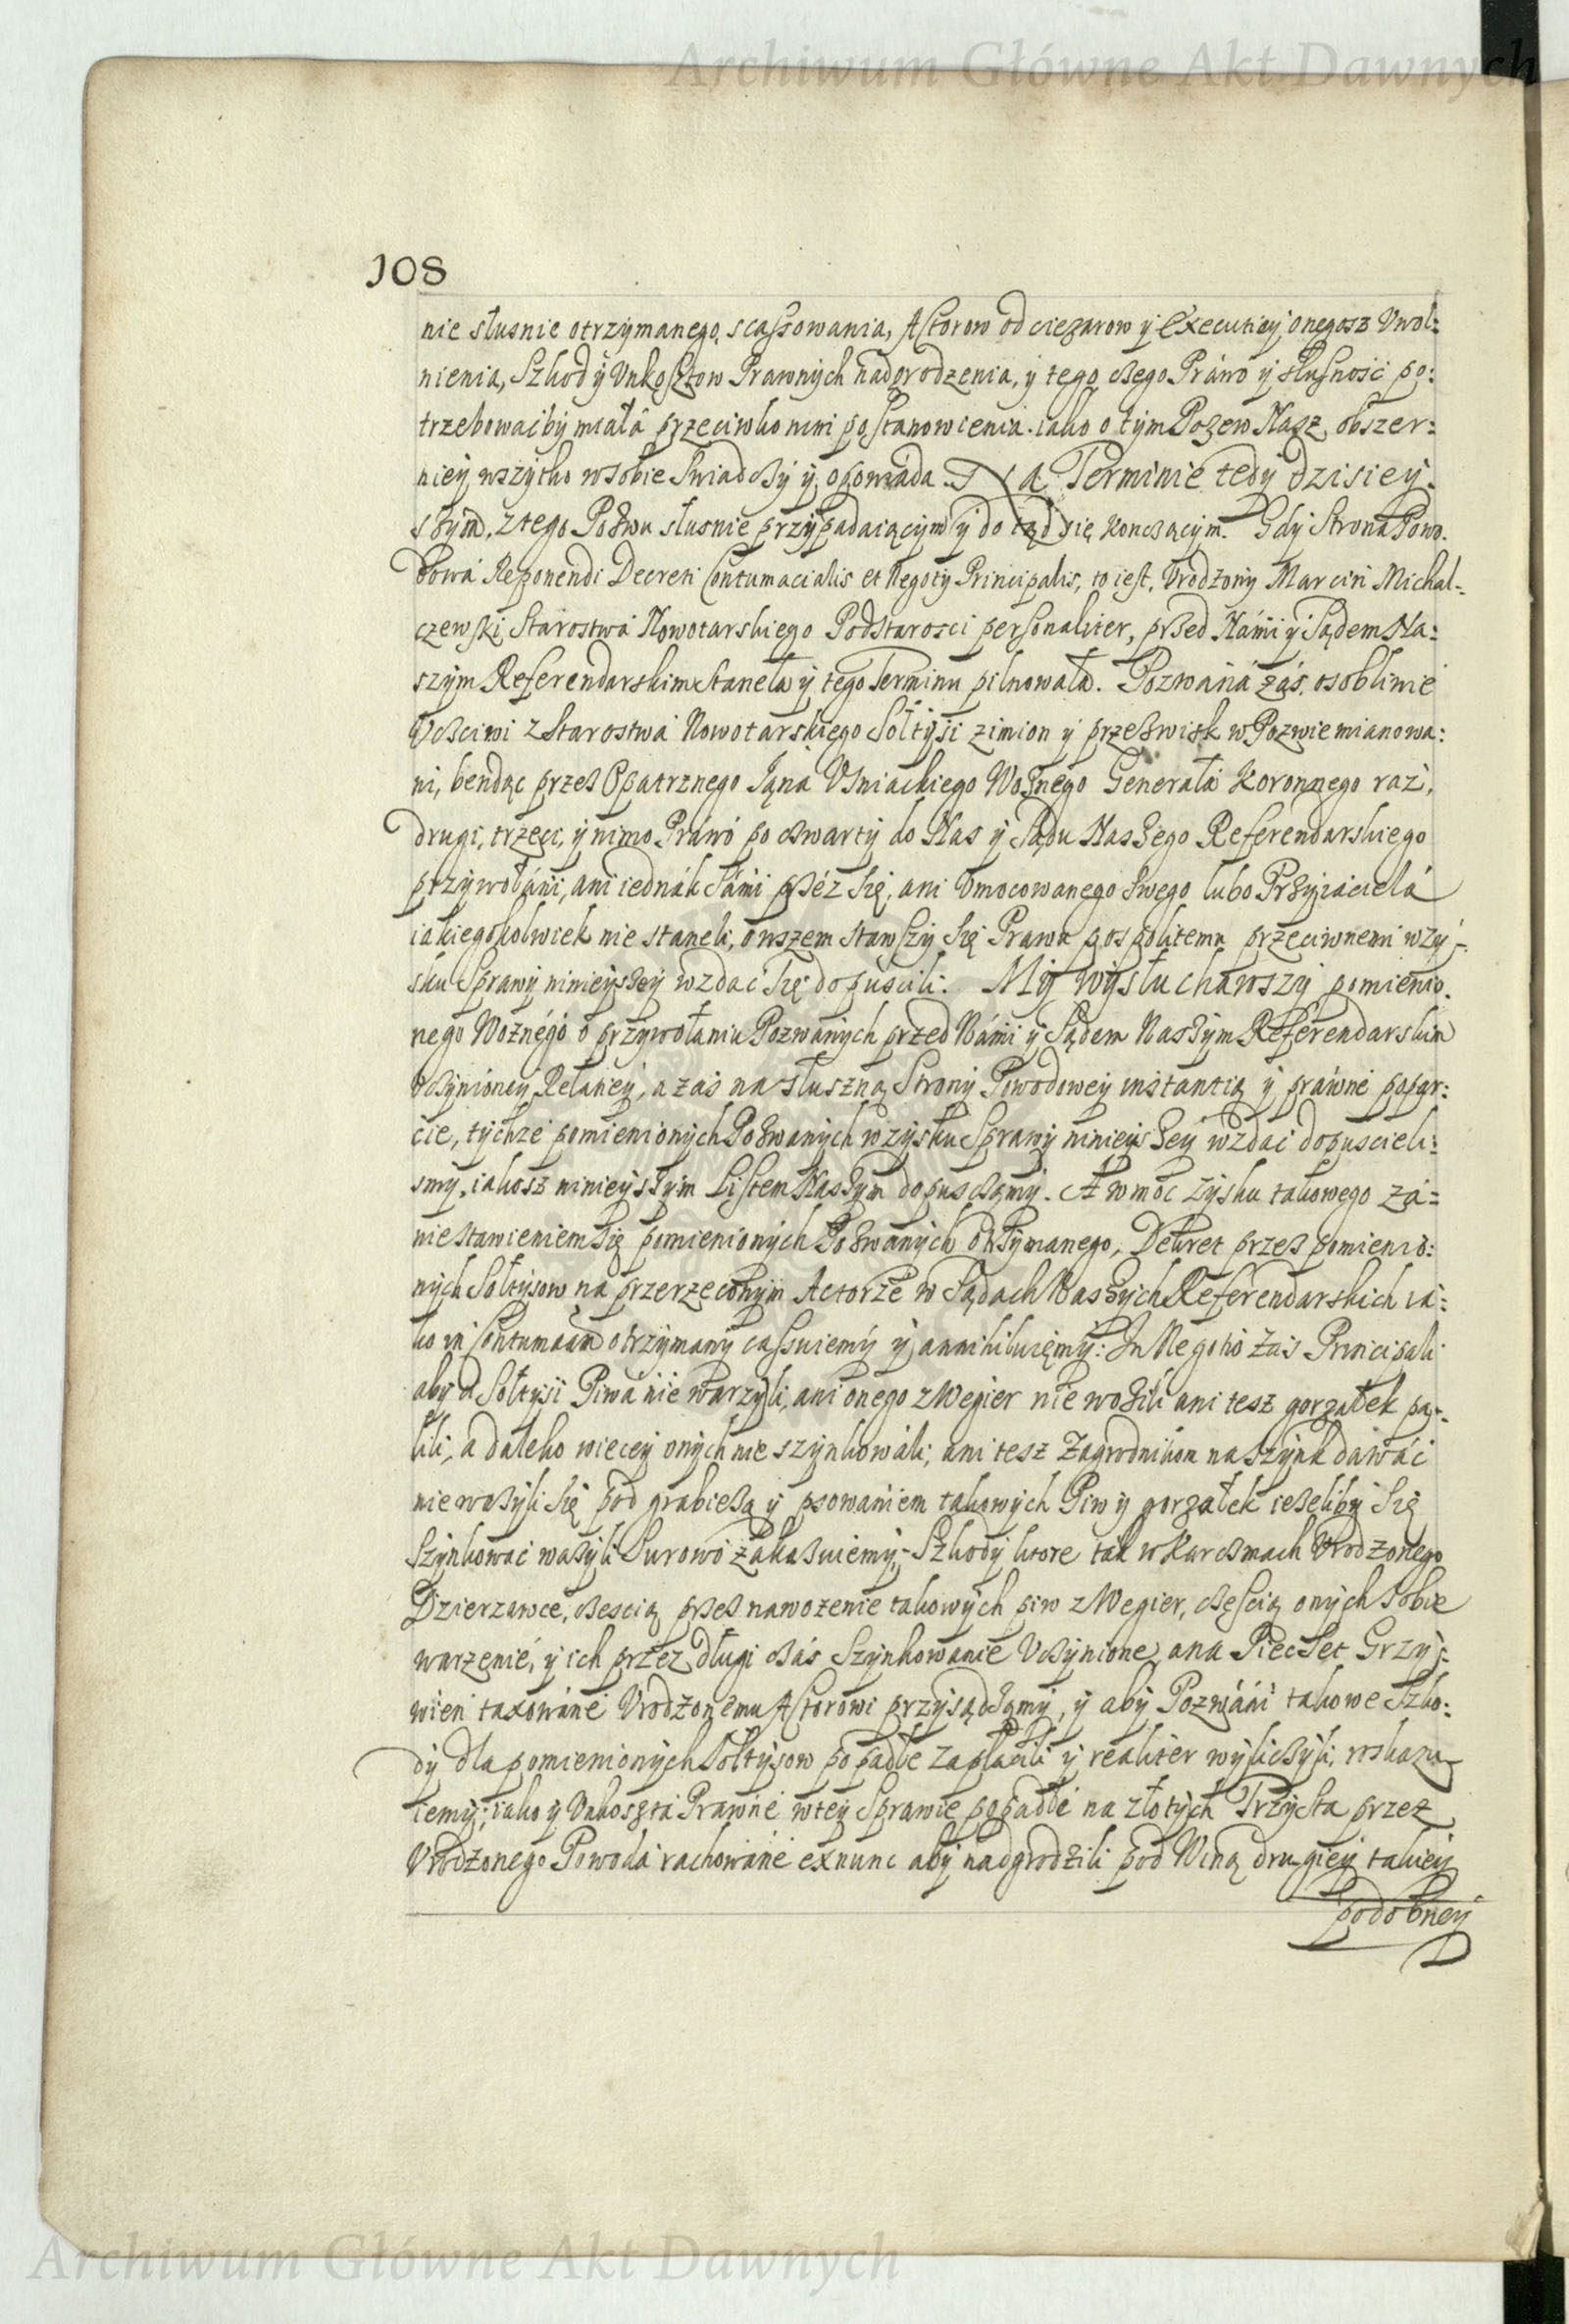 Archiwum Główne Akt Dawnych
108
nie słusnie otrzymanego, scassowania, Actorow od ciezarow y Executiey onegosz Vwol=
nienia, Szkod y Vnkosztow Prawnych nadgrodzenia, y tego czego Prawo y słusność po=
trzebowaćby miała przeciwko nim postanowienia. iako o tym Pozew Nasz obszer=
niey wszytko w sobie swiadczy y opowiada. Na Terminie tedy dzisiey=
szym, z tego Pozwu słusnie przypadaiącym y do tąd się konczącym. Gdy Strona Powo=
dowa Reponendi Decreti Contumacialis et Negoty Principalis, to iest, Vrodzony Marcin Michal=
czewski Starostwa Nowotarskiego Podstarosci personaliter, przed Nami y Sądem Na=
szym Referendarskim Staneła y tego Terminu pilnowała. Pozwana zaś, osobliwie
Vcsciwi z Starostwa Nowotarskiego Sołtysi z imion y przezwisk w Pozwie mianowa=
ni, bendąc przez Opatrznego Jana Vsniackiego Woznego Generała Koronnego raz,
drugi, trzeci, y nimo Prawo po czwarty do Nas y Sądu Naszego Referendarskiego
przywołani, ani iednak sami przez się, ani Vmocowanego swego lubo Przyiaciela
iakiegokolwiek nie staneli, owszem stawszy się Prawu pospolitemu przeciwnemi wzy=
sku Sprawy ninieyszey wzdać się dopuscili. My wysłuchawszy pomienio=
nego Woznego o przywołaniu Pozwanych przed Nami y Sądem Naszym Referendarskim
vczynioney Relaciey, a zaś na słuszną Strony Powodowey instantią y prawne popar=
cie, tychze pomienionych Pozwanych wzysku Sprawy ninieyszey wzdać dopuscieli=
smy, iakosz ninieyszym Listem Naszym dopusczamy. A w moc zysku takowego za=
niestawieniem się pomienionych Pozwanych otrzymanego, Dekret przez pomienio=
nych Sołtysow na przerzeczonym Actorze w Sądach Naszych Referendarskich ia=
ko in Contumaciam otrzymany cassuiemy y annihiluiemy: In Negotio zaś Principali
aby ci Sołtysi Piwa nie warzyli, ani onego z Wegier nie wozili ani tesz gorzałek pa=
lili, a daleko wiecey onych nie szynkowali, ani tesz Zagrodnikom na szynk dawać
nie wazyli się pod grabieżą y psowaniem takowych Piw y gorzałek iezeliby się
Szynkować wazyli surowo zakazuiemy, Szkody ktore tak w Karczmach Vrodzonego
Dzierzawce, czescią przez nawozenie takowych piw z Wegier, cześcią onych sobie
warzenie, y ich przez długi czas Szynkowanie Vczynione, a na Piec Set Grzy=
wien taxowane Vrodzonemu Actorowi przysądzamy, y aby Pozwani takowe Szko=
dy dla pomienionych Sołtysow popadłe zapłacili y realiter wyliczyli, roskazu=
iemy; iako y Vnkoszta Prawne w tey Sprawie popadłe na złotych Trzysta przez
Vrodzonego Powoda rachowane ex nunc aby nadgrodzili pod Winą drugiey takiey
podobney
Archiwum Główne Akt Dawnych